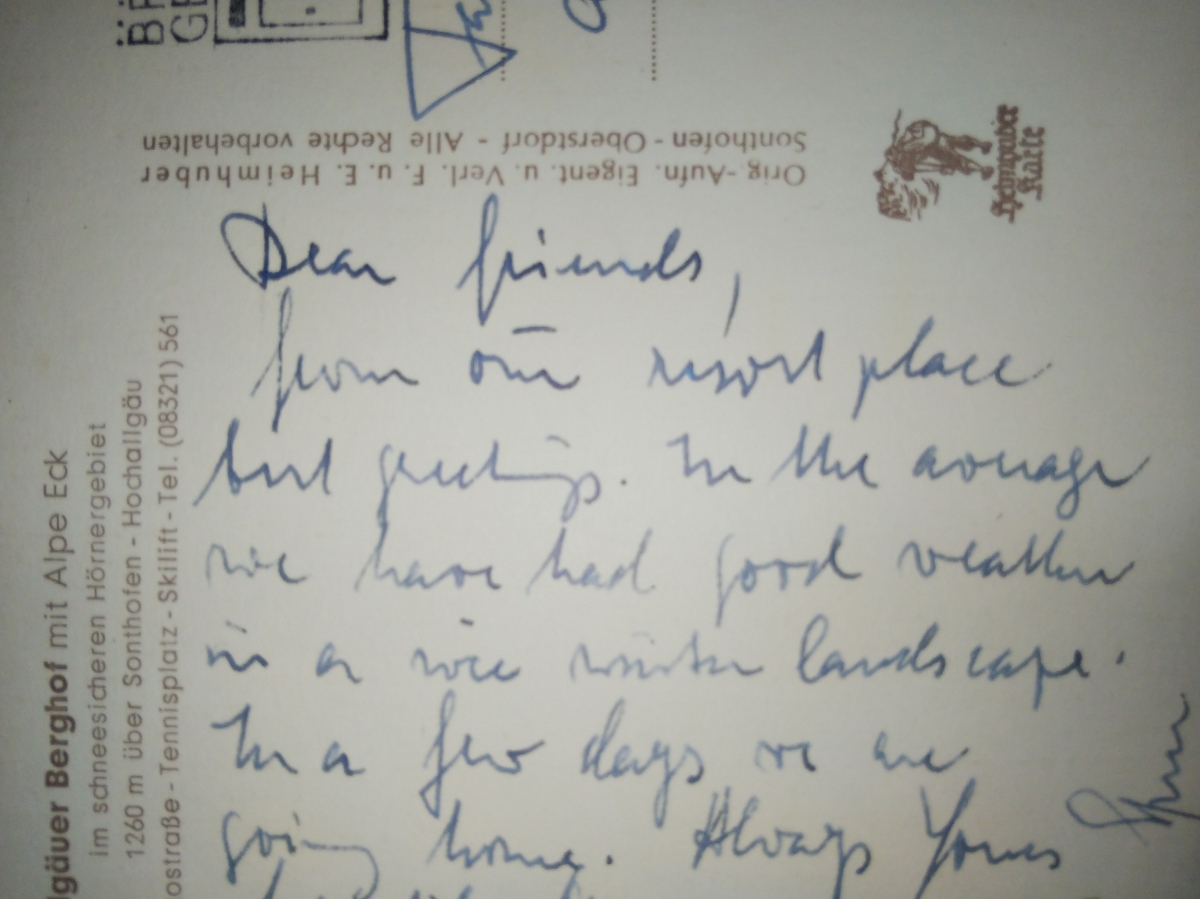 Orig.-Aufn. Eigent. u. Verl. F. u. E. Heimhuber
Sonthofen - Oberstdorf - Alle Rechte vorbehalten
Heimhuber
Karte
lgäuer Berghof mit Alpe Eck
im schneesicheren Hörnergebiet
1260 m über Sonthofen - Hochallgäu
ostraße - Tennisplatz - Skilift - Tel. (08321) 561
Dear friends,
from our resort place
best greetings. In the average
we have had good weather
in a nice winter landscape.
In a few days we are
going home. Always Yours